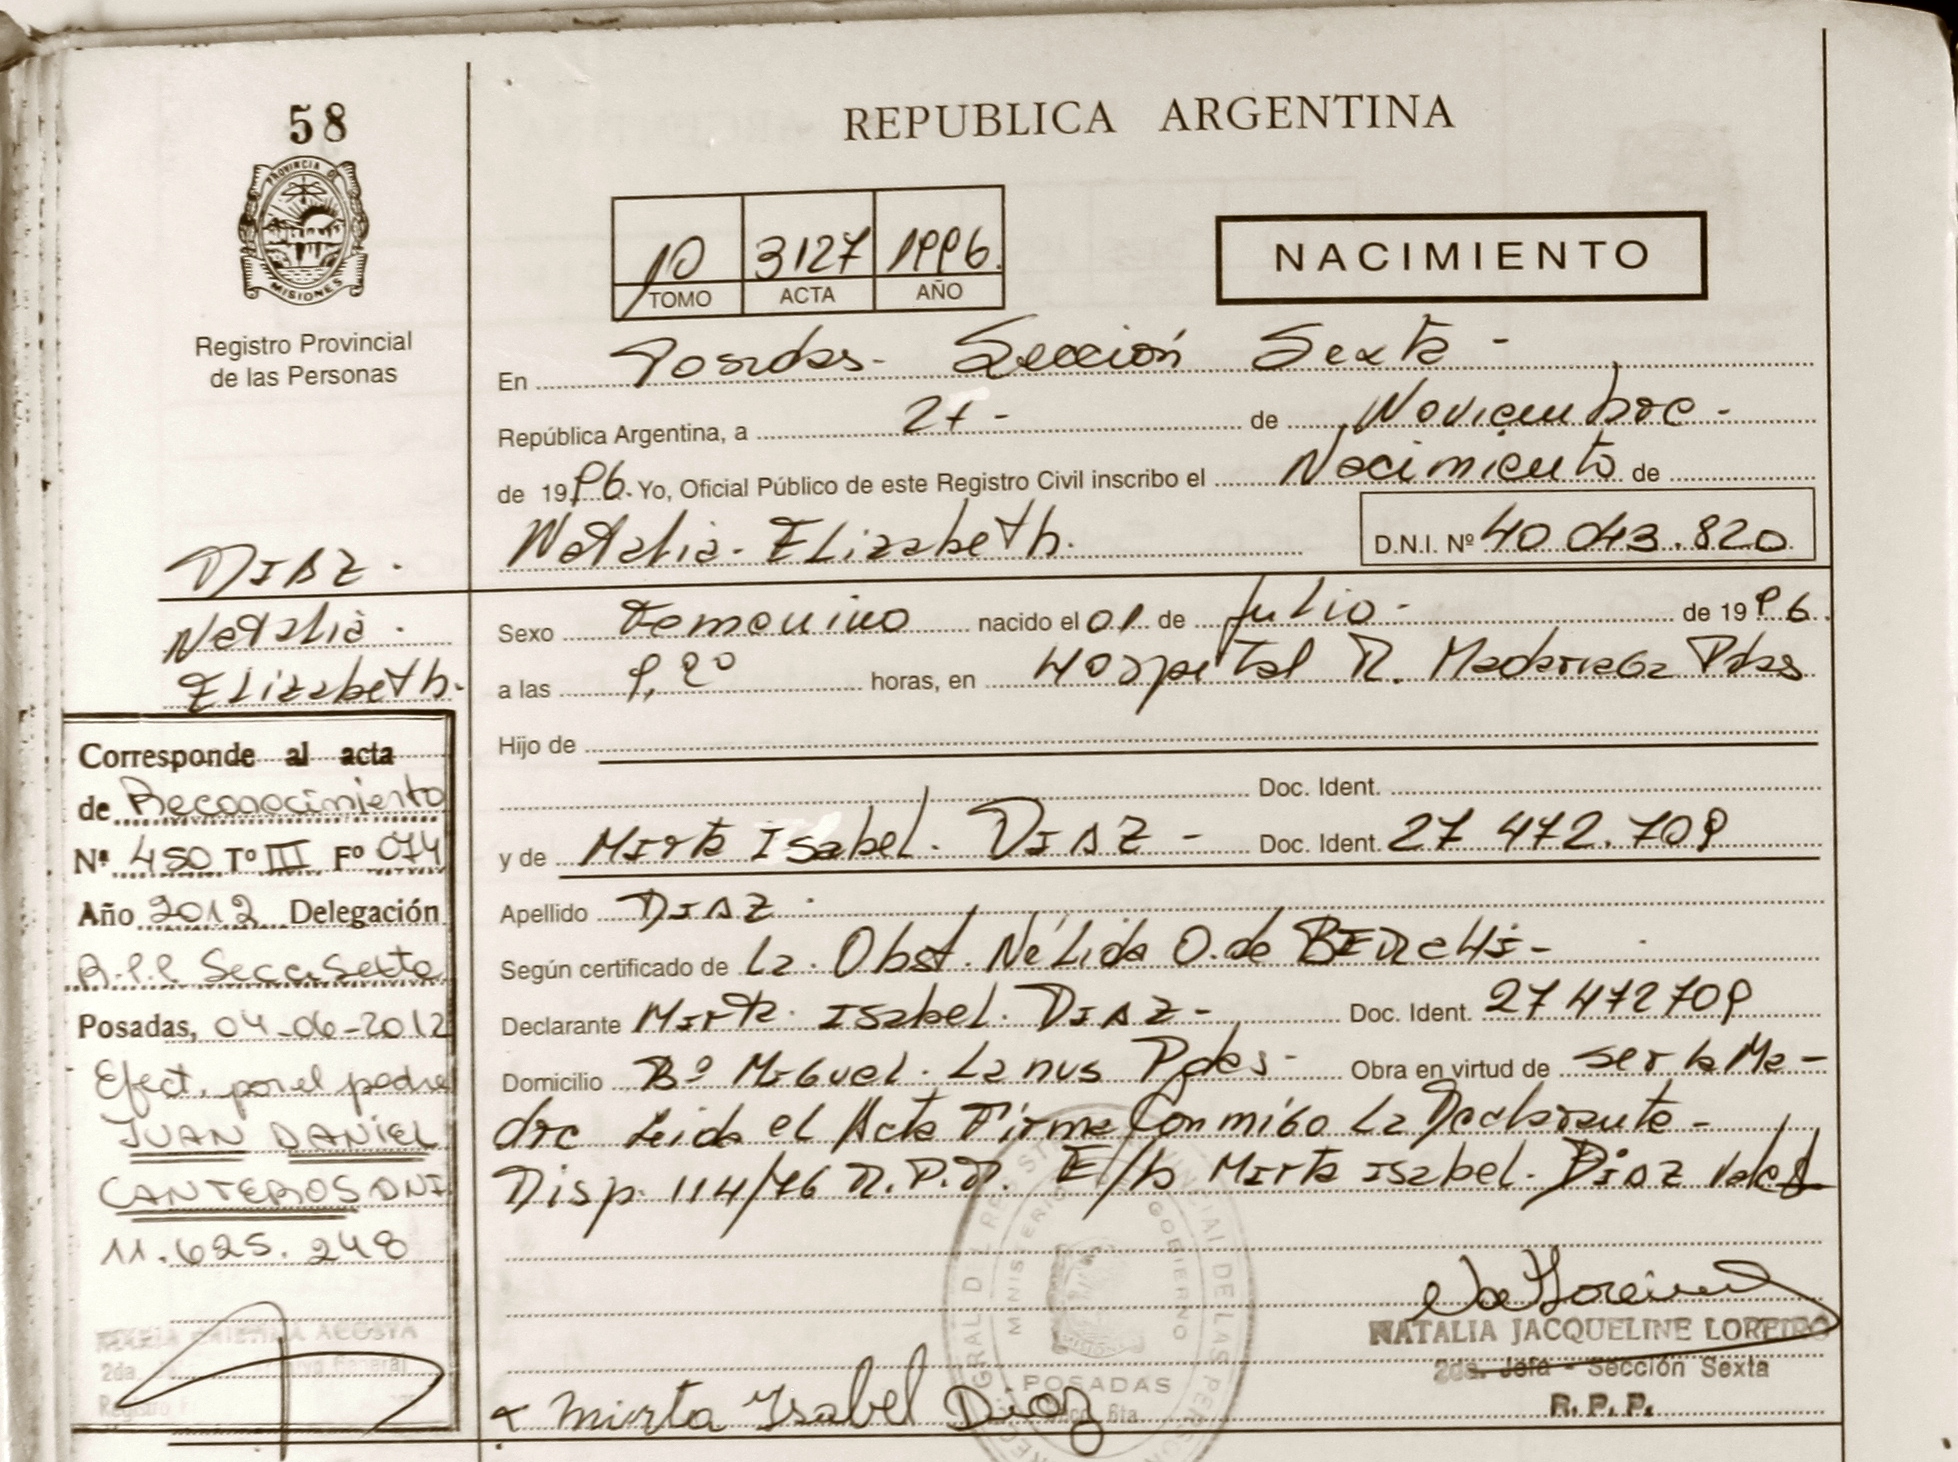 58
PROVINCIA DE
MISIONES
Registro Provincial
de las Personas
REPUBLICA ARGENTINA
10 3127 1996.
TOMO ACTA AÑO
NACIMIENTO
En Posadas - Sección Sexta -
República Argentina, a 27 - de Noviembre -
de 1996. Yo, Oficial Público de este Registro Civil inscribo el Nacimiento de
Natalia - Elizabeth. D.N.I. Nº 40 043.820
DIAZ -
Natalia -
Elizabeth -
Sexo Femenino nacido el 01 de Julio - de 1996.
a las 9,20 horas, en Hospital R. Madariaga Pdas
Hijo de
Doc. Ident.
y de Mirta Isabel. DIAZ - Doc. Ident. 27 472.709
Apellido DIAZ -
Según certificado de La. Obst. Nélida O. de
Declarante Mirta. Isabel. DIAZ - Doc. Ident. 27 472709
Domicilio Bº Miguel. Lanus Pdas - Obra en virtud de ser la Ma-
dre Leida el Acta Firma Conmigo La Declarante -
Disp. 114/76 R.P.P. E/b Mirta Isabel. Diaz Vale
Corresponde al acta
de Reconocimiento
Nº 450 Tº III Fº 074
Año 2012 Delegación
R.P.P Secc. Sexta
Posadas, 04-06-2012
Efect. por el padre
JUAN DANIEL
CANTEROS DNI
11.625.248
MARIA CRISTINA ACOSTA
2da.
MINISTERIO GOBIERNO
POSADAS
Mirta Ysabel Diaz
NATALIA JACQUELINE LOREIRO
2da. Jefa - Sección Sexta
R. P. P.